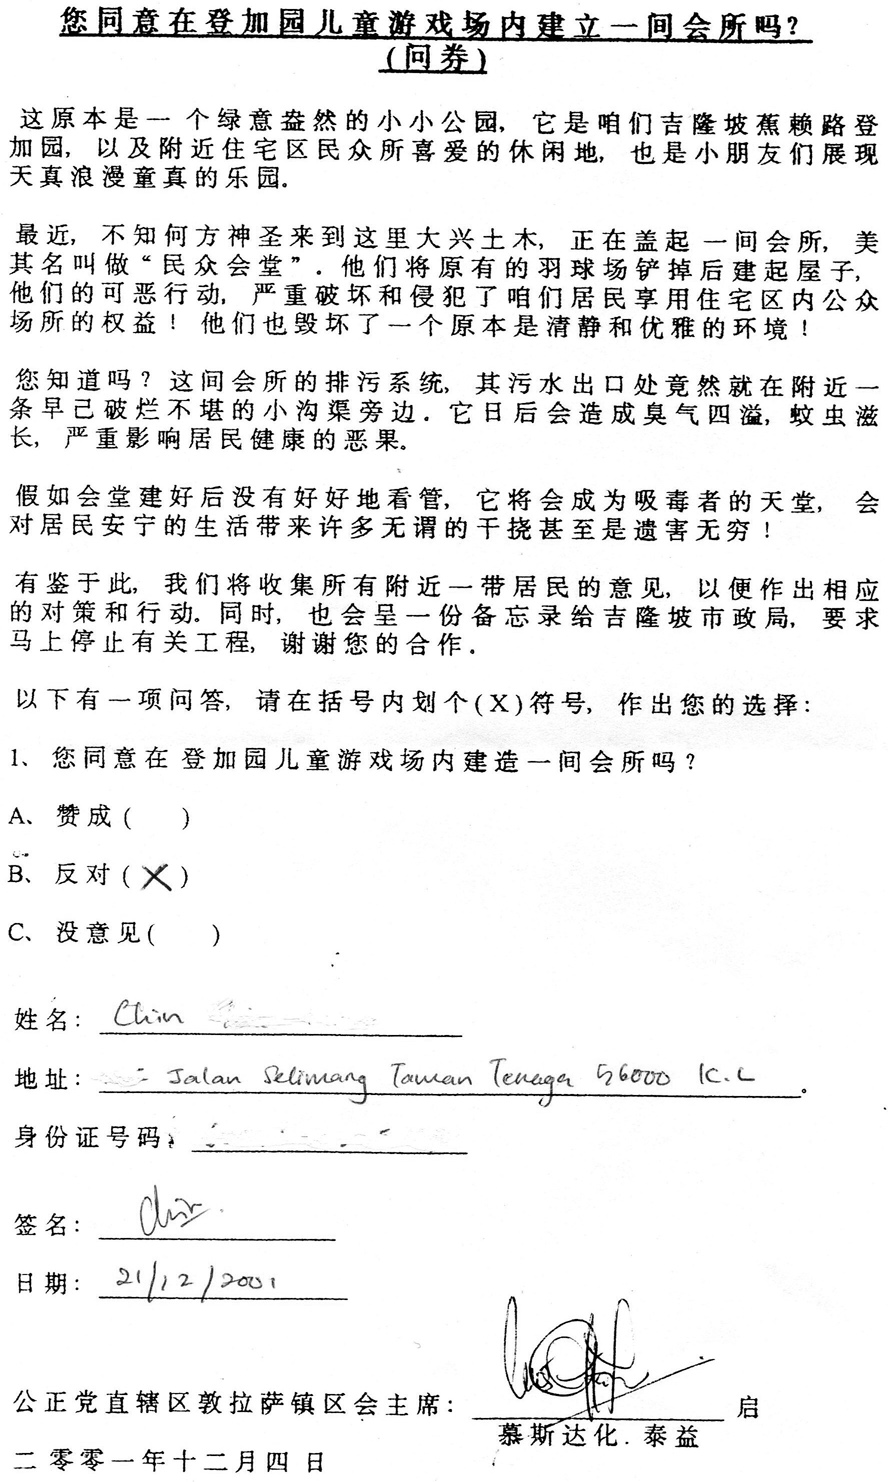 您同意在登加园儿童游戏场内建立一间会所吗?
(问券)
这原本是一个绿意盎然的小小公园, 它是咱们吉隆坡蕉赖路登
加园, 以及附近住宅区民众所喜爱的休闲地, 也是小朋友们展现
天真浪漫童真的乐园.
最近, 不知何方神圣来到这里大兴土木, 正在盖起一间会所, 美
其名叫做“民众会堂”. 他们将原有的羽球场铲掉后建起屋子,
他们的可恶行动, 严重破坏和侵犯了咱们居民享用住宅区内公众
场所的权益! 他们也毁坏了一个原本是清静和优雅的环境!
您知道吗? 这间会所的排污系统, 其污水出口处竟然就在附近一
条早己破烂不堪的小沟渠旁边. 它日后会造成臭气四溢, 蚊虫滋
长, 严重影响居民健康的恶果.
假如会堂建好后没有好好地看管, 它将会成为吸毒者的天堂, 会
对居民安宁的生活带来许多无谓的干挠甚至是遗害无穷!
有鉴于此, 我们将收集所有附近一带居民的意见, 以便作出相应
的对策和行动. 同时, 也会呈一份备忘录给吉隆坡市政局, 要求
马上停止有关工程, 谢谢您的合作.
以下有一项问答, 请在括号内划个(X)符号, 作出您的选择:
1、您同意在 登加园儿童游戏场内建造一间会所吗?
A、赞成( )
B、反对(X)
C、没意见( )
姓名: Chin
地址: Jalan Selimang Taman Tenaga 56000 K.L.
身份证号码:
签名: Chin
日期: 21/12/2001
公正党直辖区敦拉萨镇区会主席: 启
慕斯达化.泰益
二零零一年十二月四日